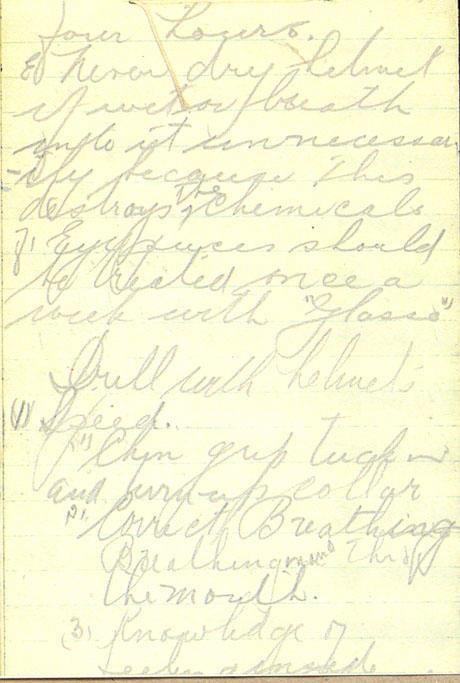 four hours.
6) Never dry helmet
if wet or breath
into it unnecessar-
-ily because this
destroys the chemicals
7) Eyepieces should
be treated once a
week with "Glasso"
Drill with helmets
(1) Speed.
"1" Chin grip tuck in
and turn up collar
"2" Correct Breathing
Breathing thro
the mouth.
(3) Knowledge of